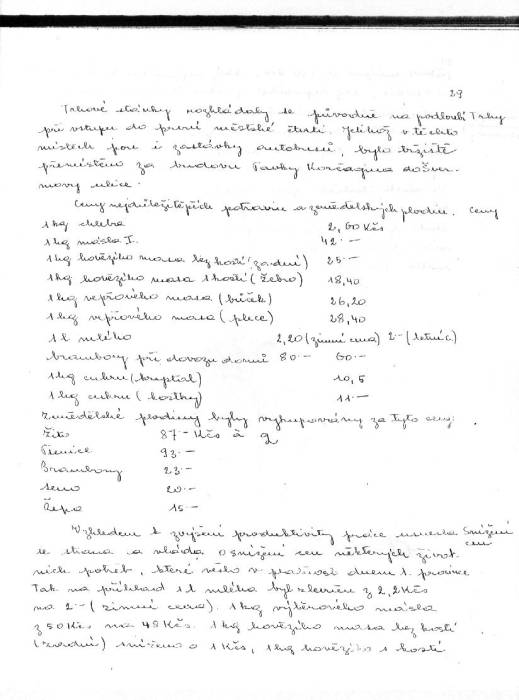 29
Trhové stánky rozkládaly se původně na podloubí Trhy
při vstupu do první městské čtvrti. Jelikož v těchto
místech jsou i zastávky autobusů, bylo tržiště
přemístěno za budovu Pavky Korčagina do Šver-
movy ulice.
Ceny nejdůležitějších potravin a zemědělských plodin. Ceny
1 kg chleba 2,60 Kčs
1 kg másla I. 42.—
1 kg hovězího masa bez kostí (zadní) 25.—
1 kg hovězího masa s kostí (žebro) 18,40
1 kg vepřového masa (bůček) 26,20
1 kg vepřového masa (plece) 28,40
1 l mléka 2,20 (zimní cena) 2.— (letní c.)
brambory při dovozu domů 80.— 60.—
1 kg cukru (krystal) 10,5
1 kg cukru (kostky) 11.—
Zemědělské plodiny byly vykupovány za tyto ceny:
Žito 87.— Kčs à q
Pšenice 93.—
Brambory 23.—
seno 20.—
Řepa 15.—
Vzhledem k zvýšení produktivity práce usnesla Snížení
se strana a vláda o snížení cen některých život cen
ních potřeb, které vešlo v platnost dnem 1. prosince
Tak na příklad 1 l mléka byl zlevněn z 2,2 Kčs
na 2.— (zimní cena). 1 kg výběrového másla
z 50 Kčs na 48 Kčs. 1 kg hovězího masa bez kostí
(zadní) sníženo o 1 Kčs, 1 kg hovězího s kostí